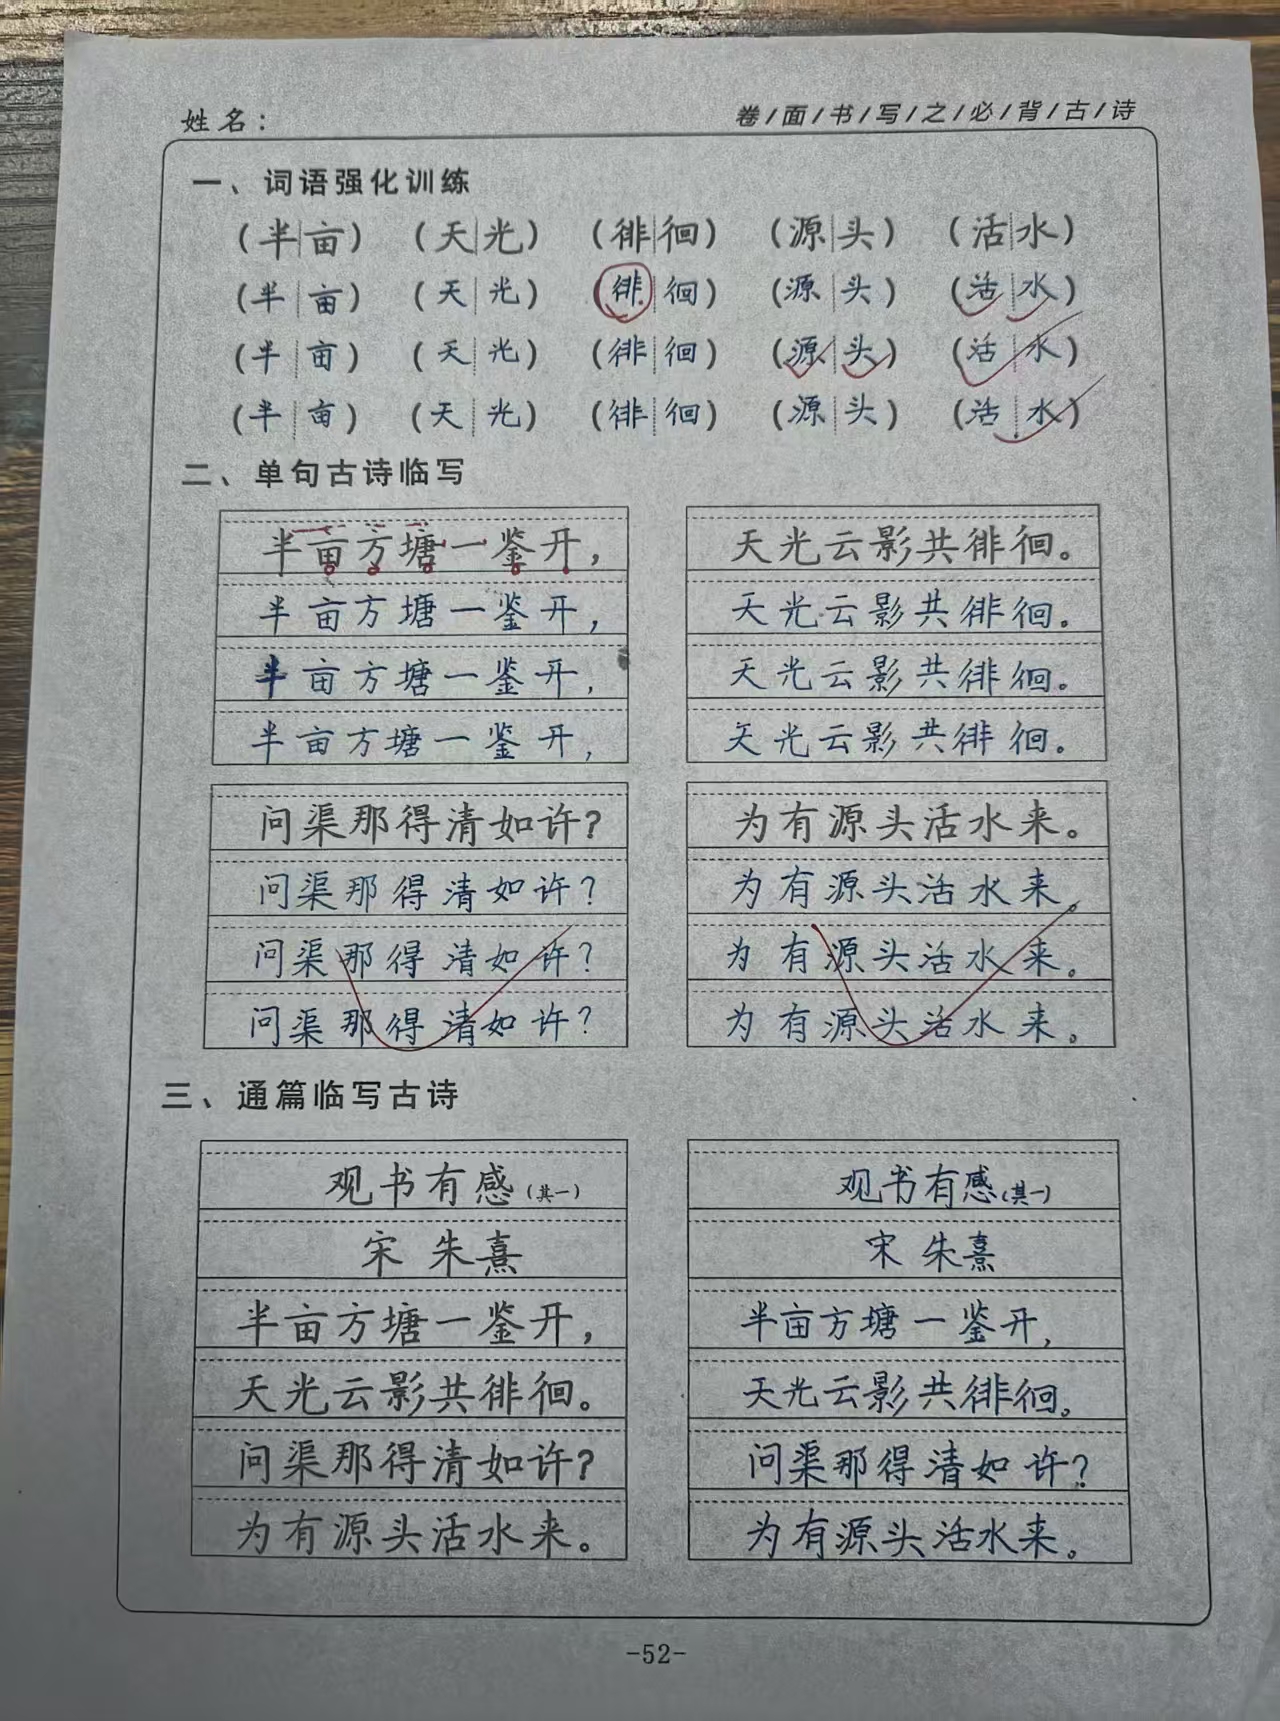 姓名：
卷/面/书/写/之/必/背/古/诗
一、词语强化训练
（半亩）（天光）（徘徊）（源头）（活水）
（半亩）（天光）（徘徊）（源头）（活水）
（半亩）（天光）（徘徊）（源头）（活水）
（半亩）（天光）（徘徊）（源头）（活水）
二、单句古诗临写
半亩方塘一鉴开，
半亩方塘一鉴开，
半亩方塘一鉴开，
半亩方塘一鉴开，
天光云影共徘徊。
天光云影共徘徊。
天光云影共徘徊。
天光云影共徘徊。
问渠那得清如许？
问渠那得清如许？
问渠那得清如许？
问渠那得清如许？
为有源头活水来。
为有源头活水来。
为有源头活水来。
为有源头活水来。
三、通篇临写古诗
观书有感（其一）
宋 朱熹
半亩方塘一鉴开，
天光云影共徘徊。
问渠那得清如许？
为有源头活水来。
观书有感（其一）
宋 朱熹
半亩方塘一鉴开，
天光云影共徘徊。
问渠那得清如许？
为有源头活水来。
-52-